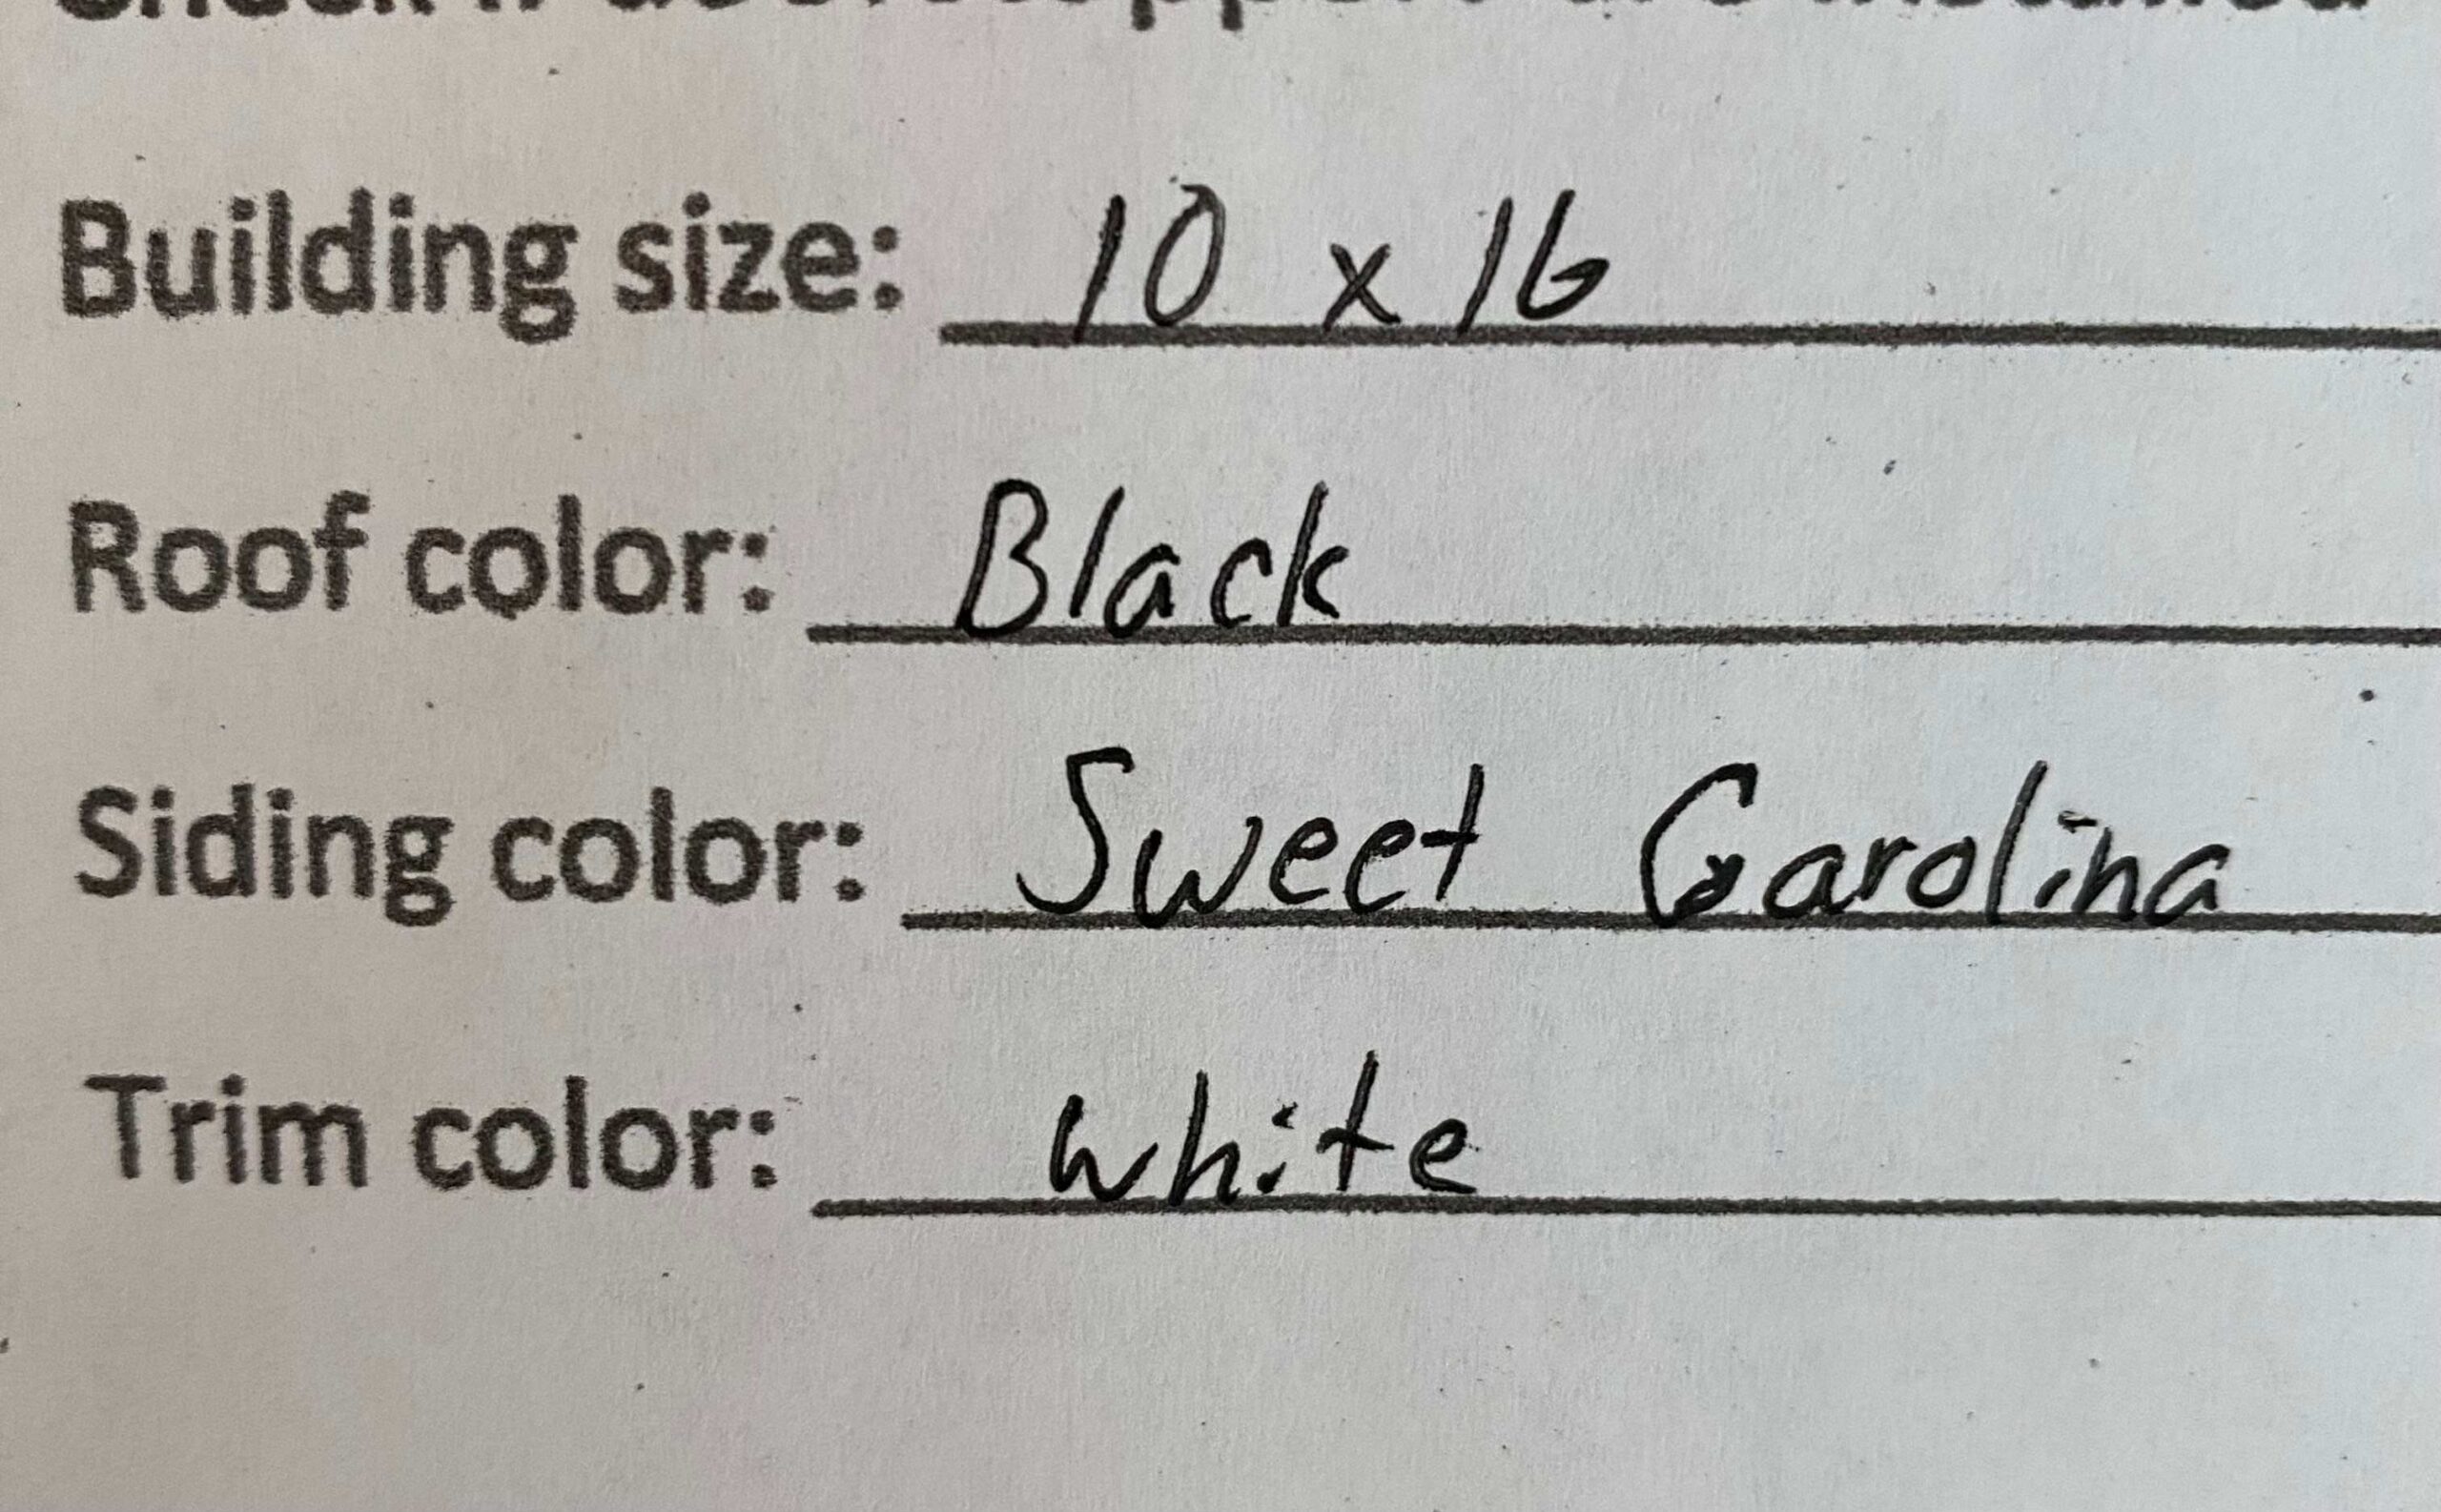 Building size: 10 x 16
Roof color: Black
Siding color: Sweet Carolina
Trim color: white